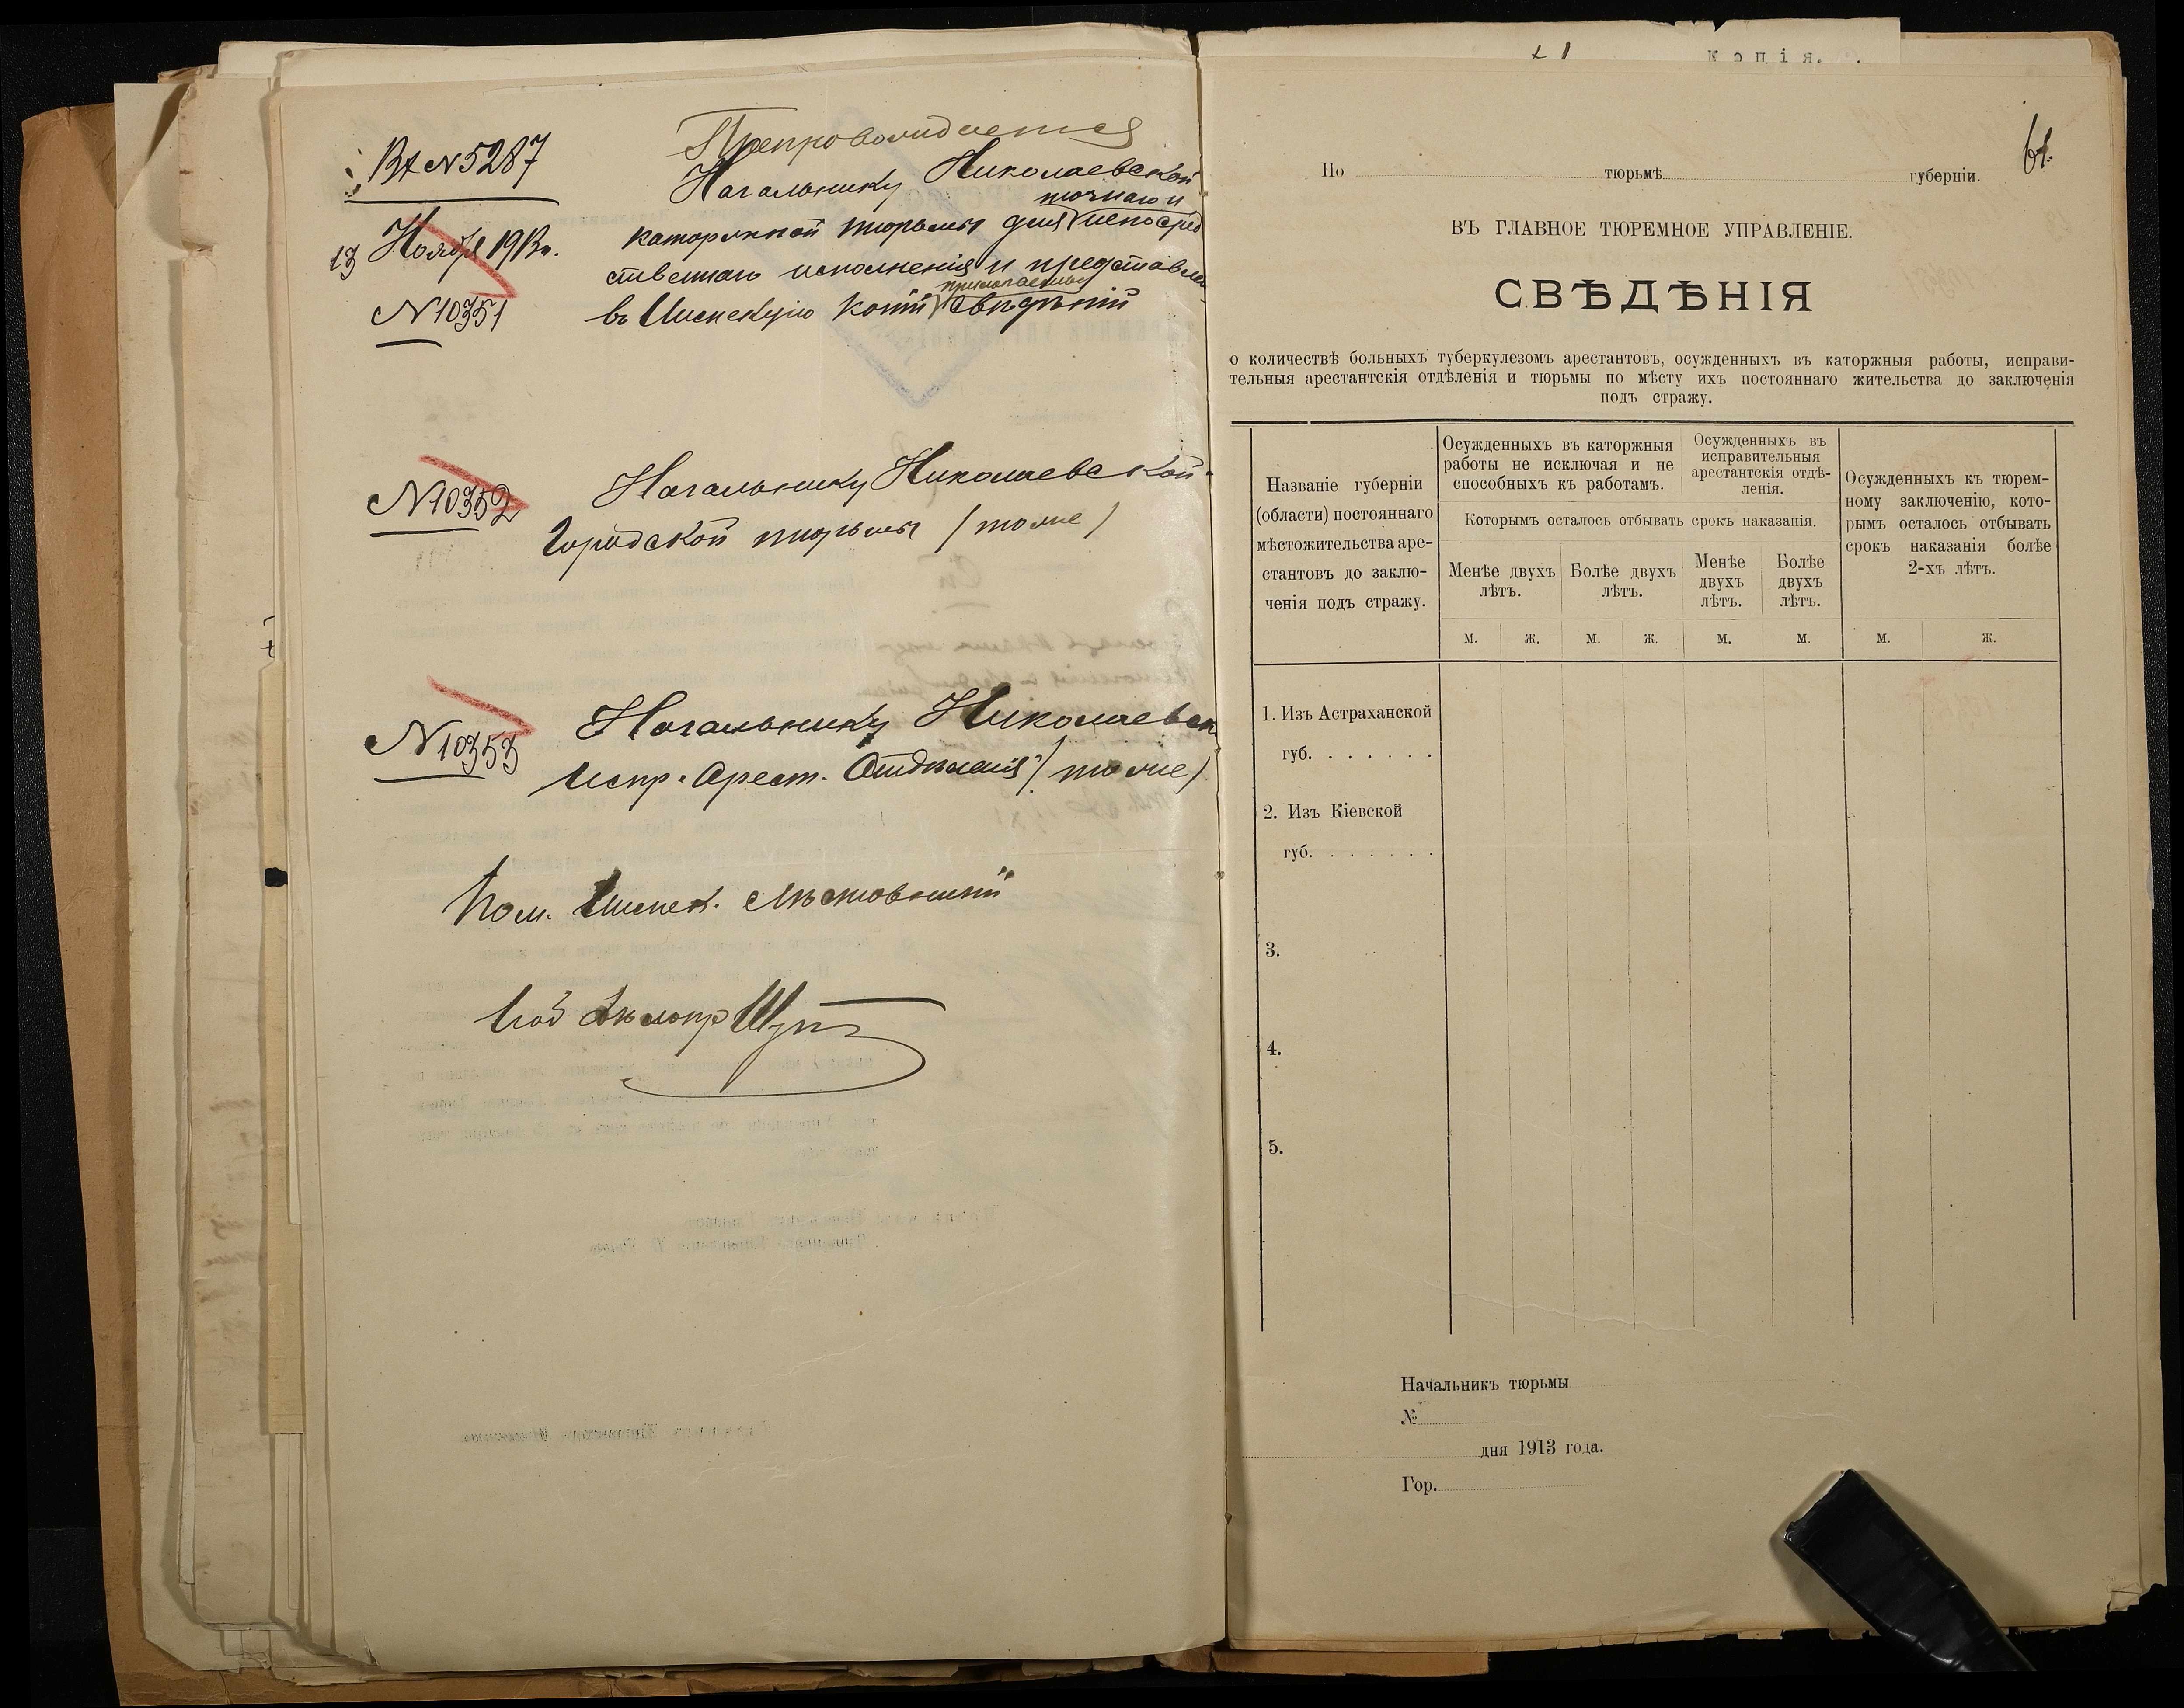 Вх № 5287
13 Ноября 1913 г.
№ 10351
Препровождается
Начальнику Николаевской
точнаго и
каторжной тюрьмы для непосред
ственнаго исполненія и представле
прилагаемых
въ Инспекцію копій свѣдѣній
№ 10352
Начальнику Николаевской
Городской тюрьмы (тоже)
№ 10353
Начальнику Николаевск
Испр. Арест. Отдѣленія (тоже)
Пом. Инспек.
Дѣлопр
Копія.
61.
По тюрьмѣ губерніи.
ВЪ ГЛАВНОЕ ТЮРЕМНОЕ УПРАВЛЕНІЕ.
СВѢДѢНІЯ
о количествѣ больныхъ туберкулезомъ арестантовъ, осужденныхъ въ каторжныя работы, исправи-
тельныя арестантскія отдѣленія и тюрьмы по мѣсту ихъ постояннаго жительства до заключенія
подъ стражу.
Названіе губерніи
(области) постояннаго
мѣстожительства аре-
стантовъ до заклю-
ченія подъ стражу.
Осужденныхъ въ каторжныя
работы не исключая и не
способныхъ къ работамъ.
Осужденныхъ въ
исправительныя
арестантскія отдѣ-
ленія.
Которымъ осталось отбывать срокъ наказанія.
Менѣе двухъ
лѣтъ.
Болѣе двухъ
лѣтъ.
Менѣе
двухъ
лѣтъ.
Болѣе
двухъ
лѣтъ.
Осужденныхъ къ тюрем-
ному заключенію, кото-
рымъ осталось отбывать
срокъ наказанія болѣе
2-хъ лѣтъ.
м. ж. м. ж. м. м. м. ж.
1. Изъ Астраханской
губ. . . . . . .
2. Изъ Кіевской
губ. . . . . . .
3.
4.
5.
Начальникъ тюрьмы
№
дня 1913 года.
Гор.